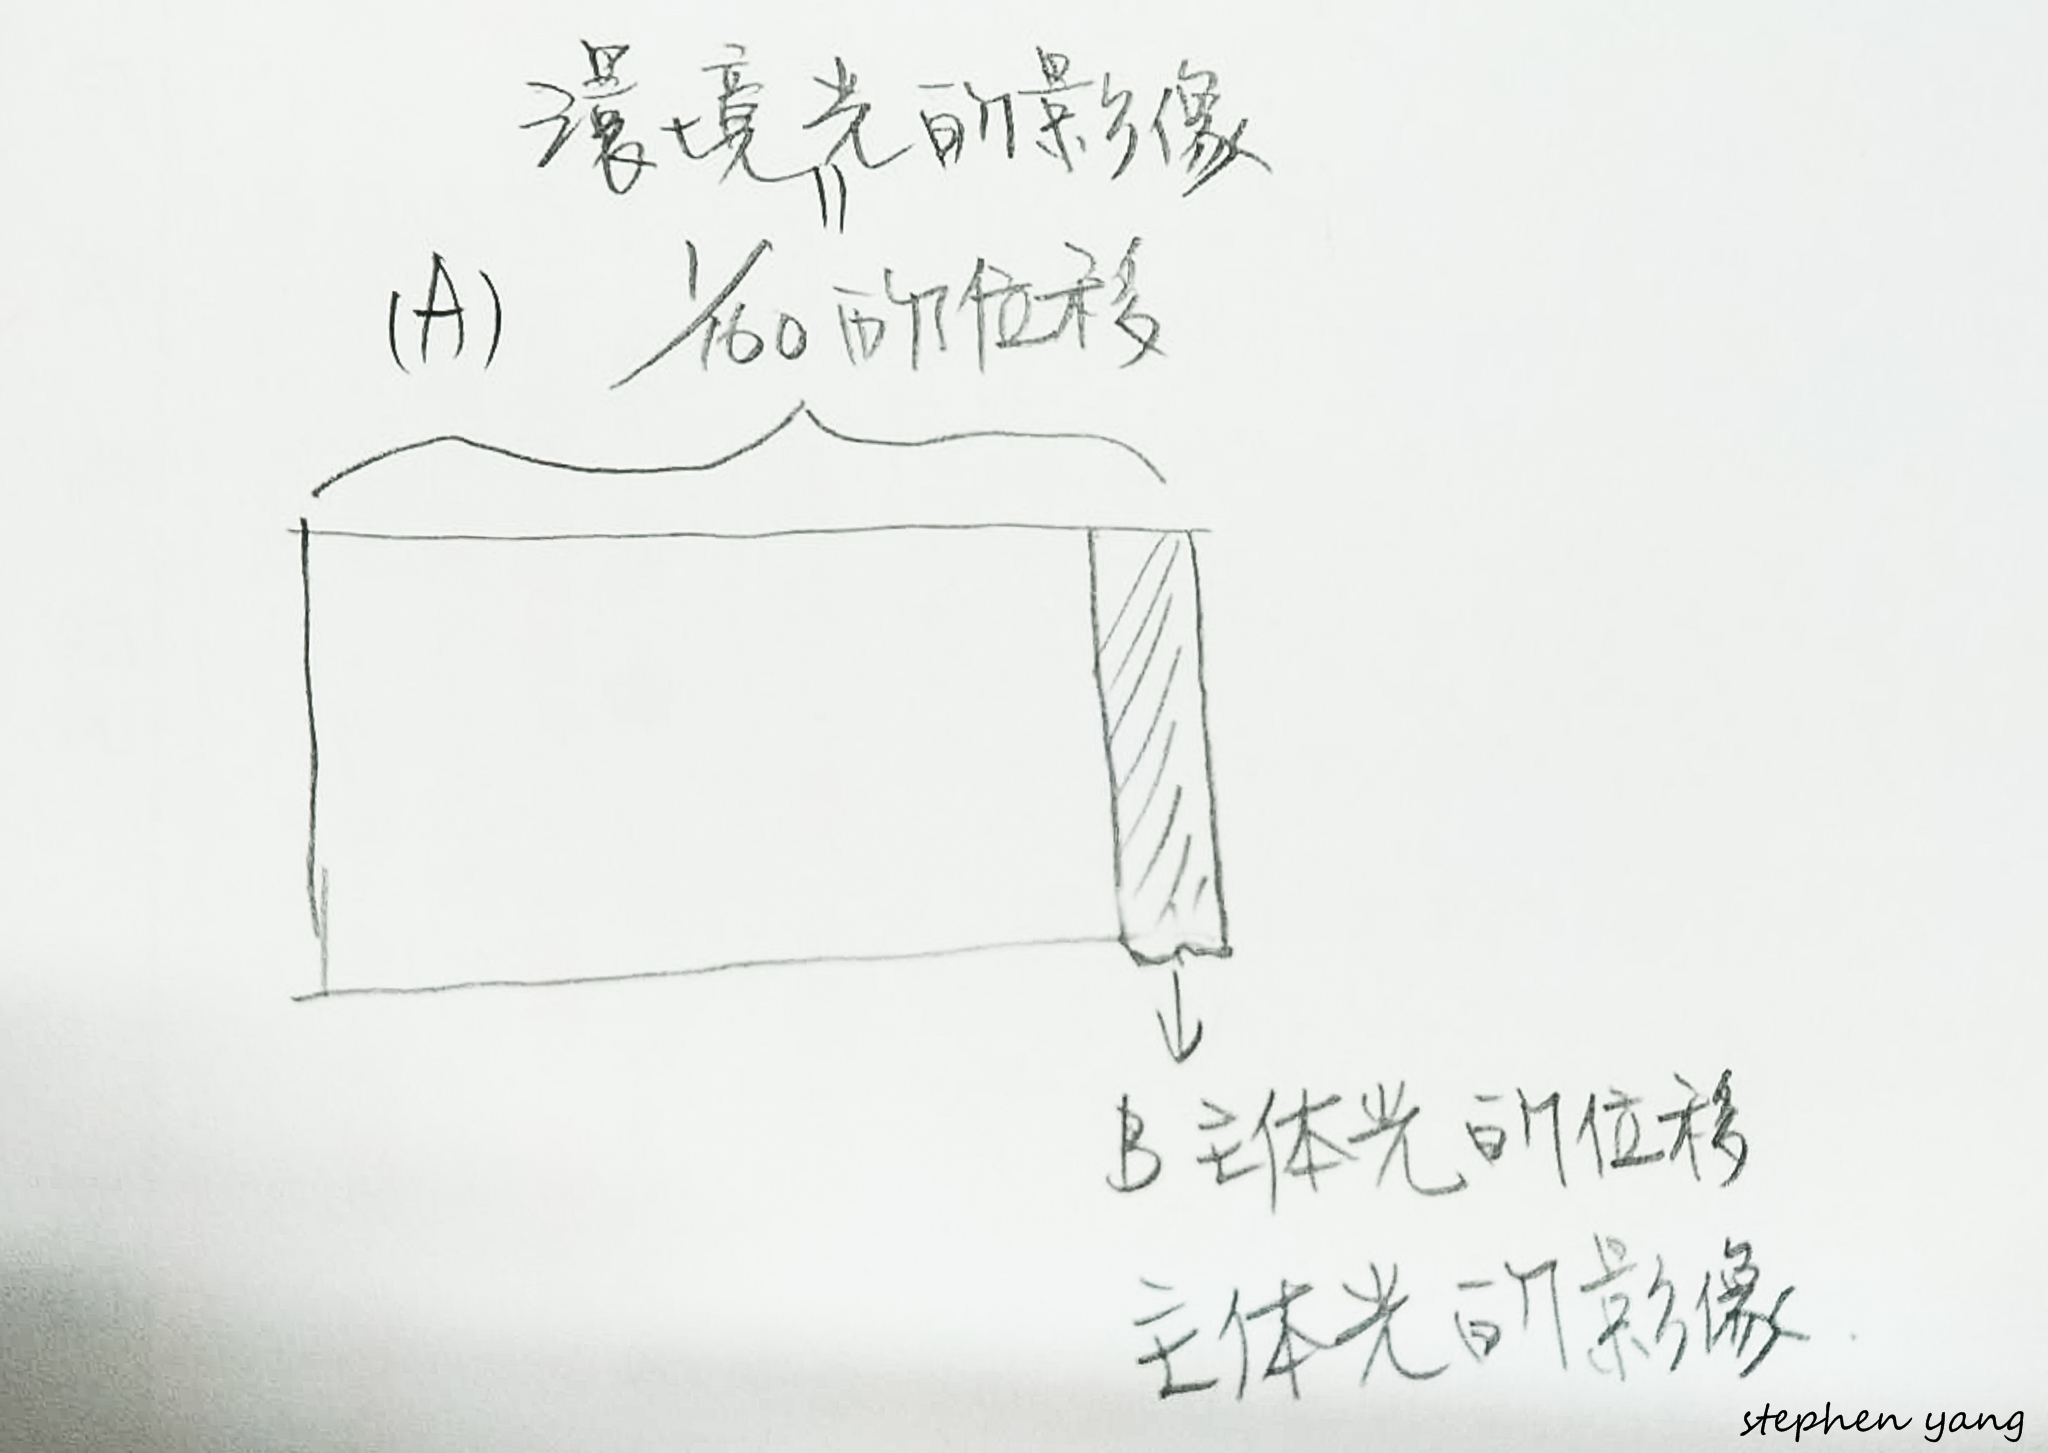 環境光的影像
=
(A) 1/160的位移
B 主体光的位移
主体光的影像.
stephen yang